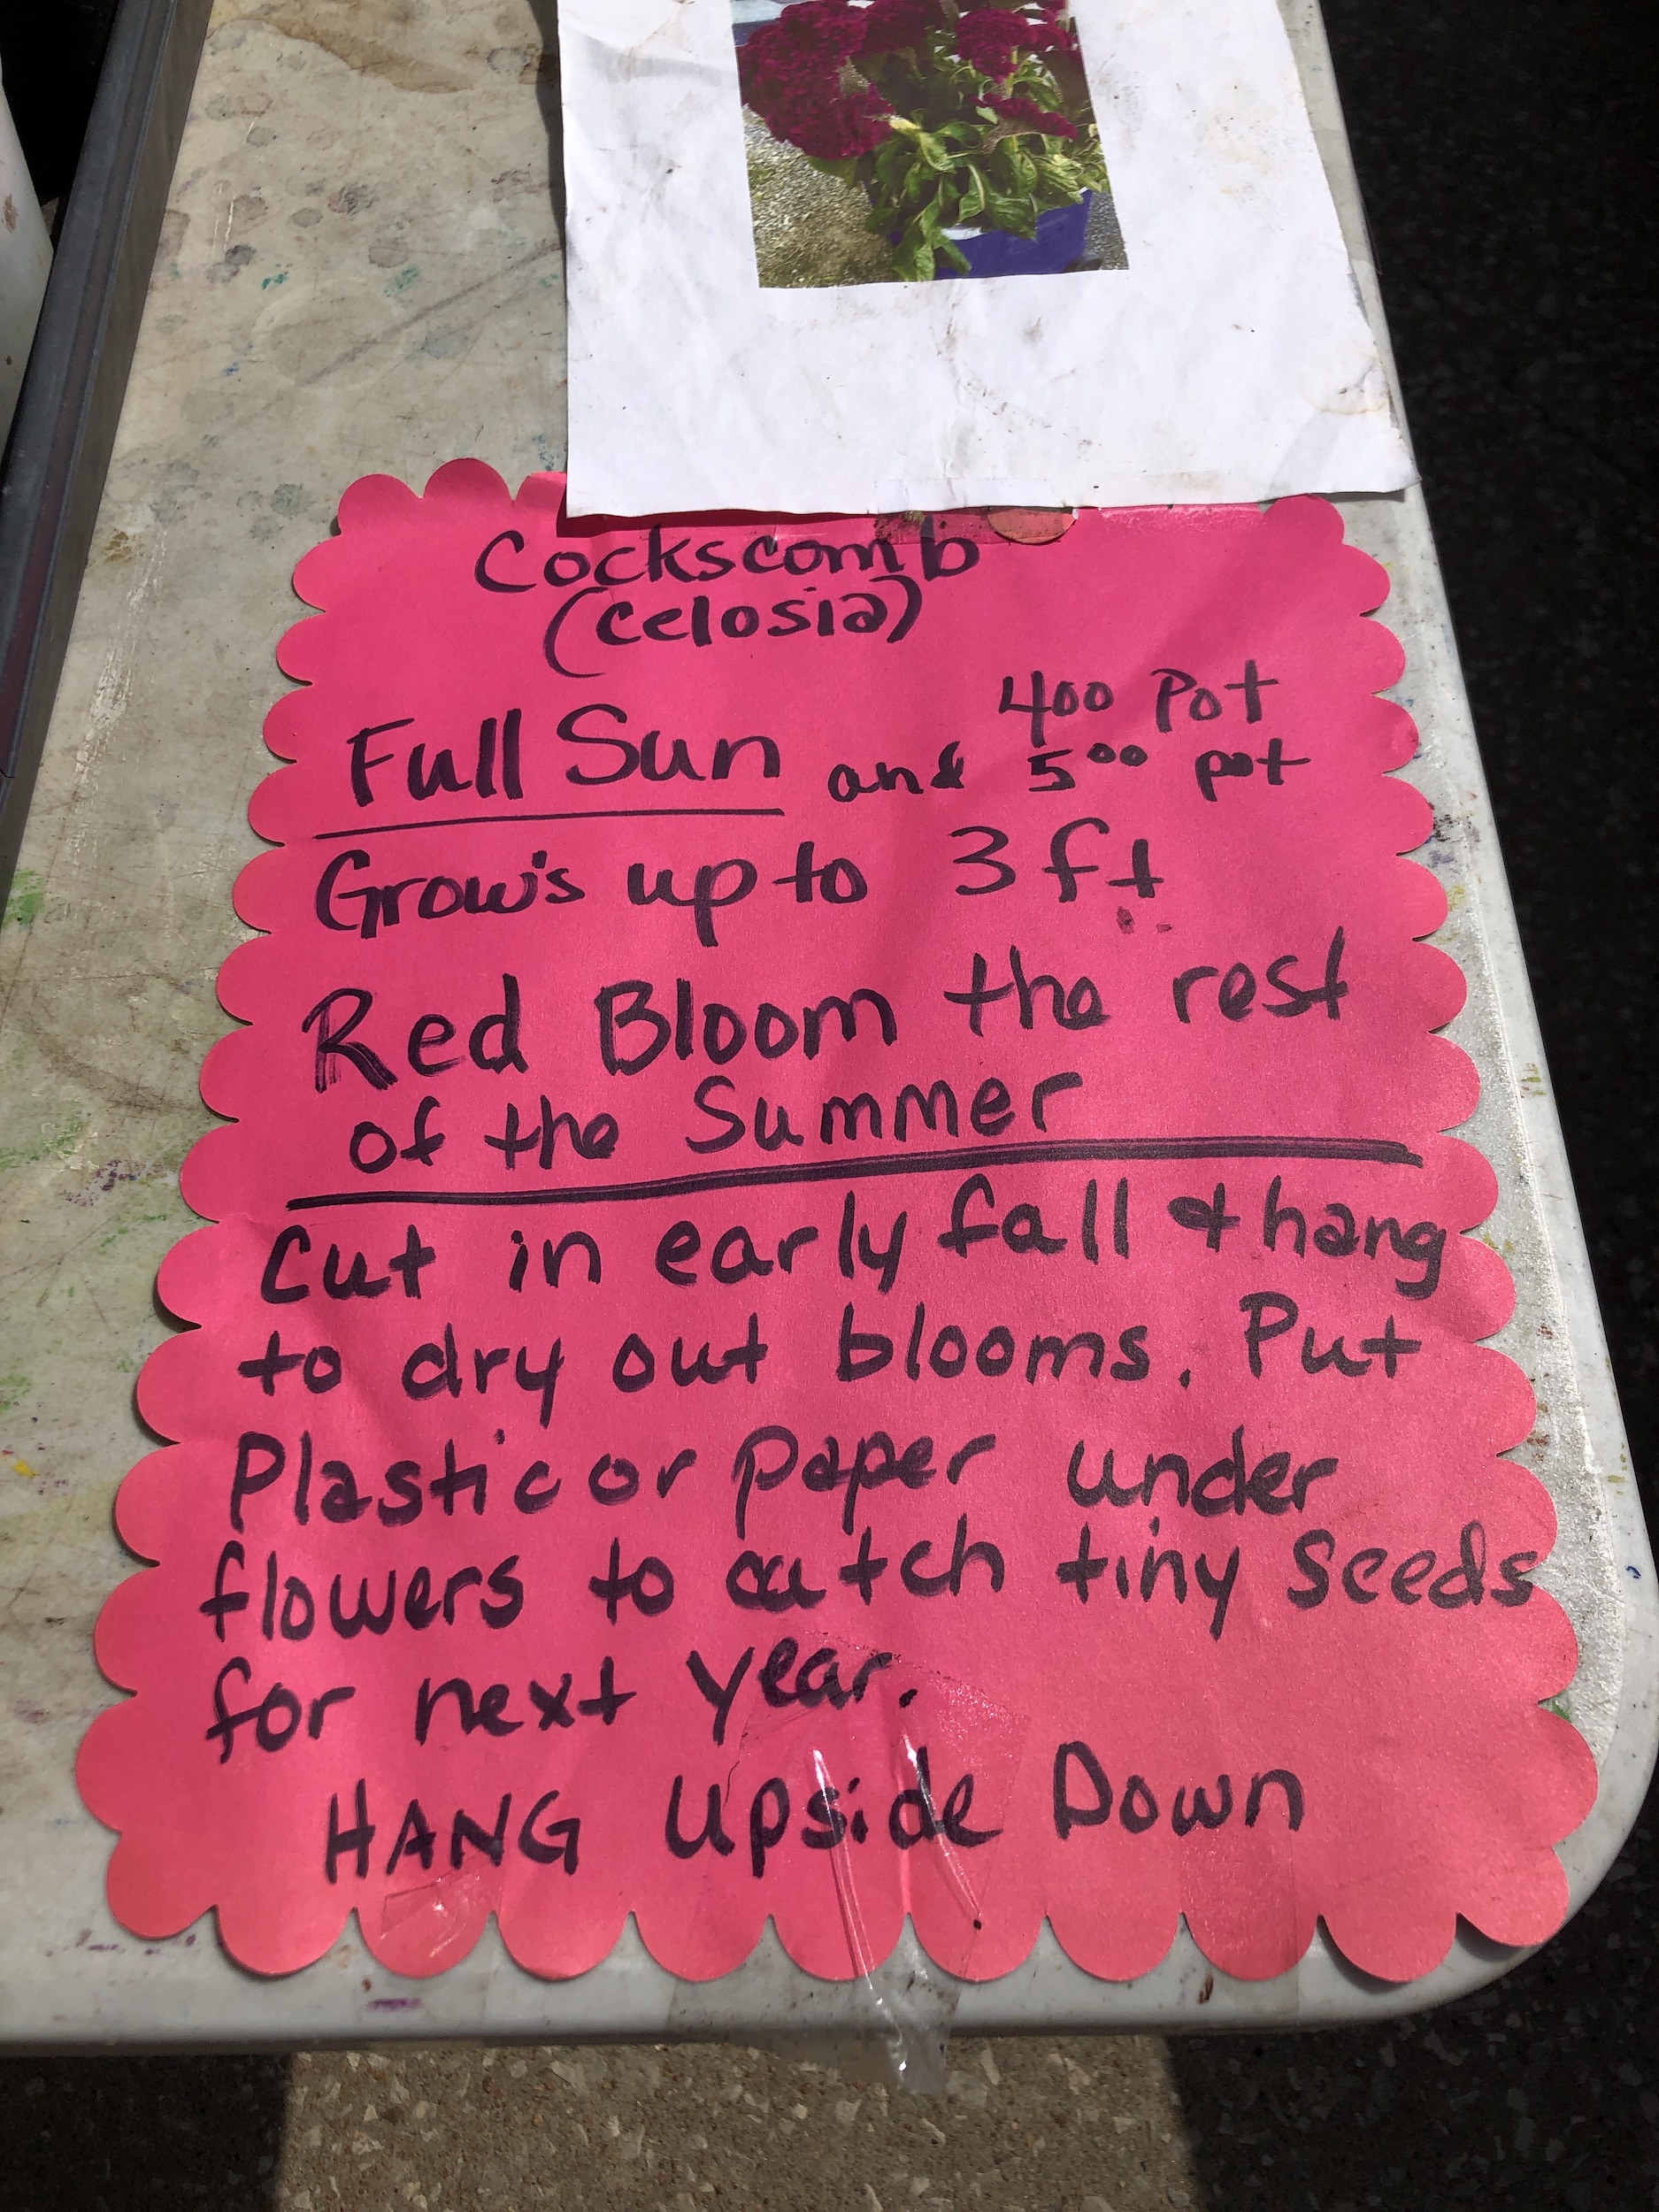 Cockscomb
(Celosia)
400 Pot
Full Sun and 5⁰⁰ pot
Grow's up to 3 ft
Red Bloom the rest
of the Summer
Cut in early fall & hang
to dry out blooms. Put
Plastic or paper under
flowers to catch tiny Seeds
for next year.
HANG Upside Down